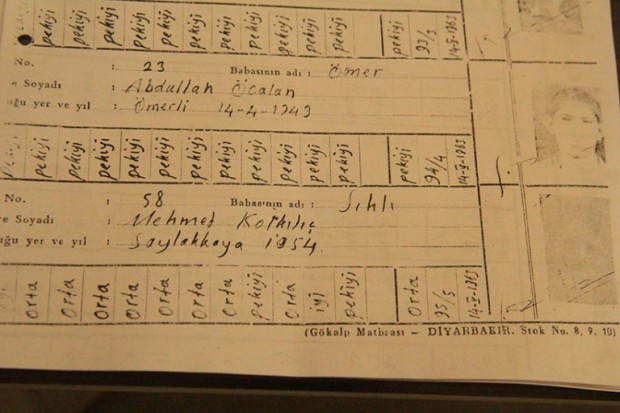 pekiyi pekiyi pekiyi pekiyi pekiyi pekiyi pekiyi pekiyi pekiyi pekiyi pekiyi 93/3 14-V-1963
No. : 23 Babasının adı : Ömer
e Soyadı : Abdullah Öcalan
ğu yer ve yıl : Ömerli 14-4-1949
pekiyi pekiyi pekiyi pekiyi pekiyi pekiyi pekiyi pekiyi pekiyi pekiyi pekiyi 94/4 14-V-1963
No. : 58 Babasının adı : Sıhlı
e Soyadı : Mehmet Korkılıç
uğu yer ve yıl : Saylakkaya 1954
Orta Orta Orta Orta Orta Orta Orta pekiyi Orta iyi pekiyi Orta 95/5 14-V-1963
(Gökalp Matbaası — DİYARBAKIR. Stok No. 8, 9, 10)